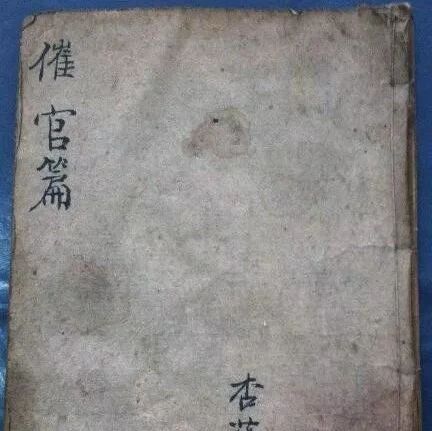 催官篇
杏